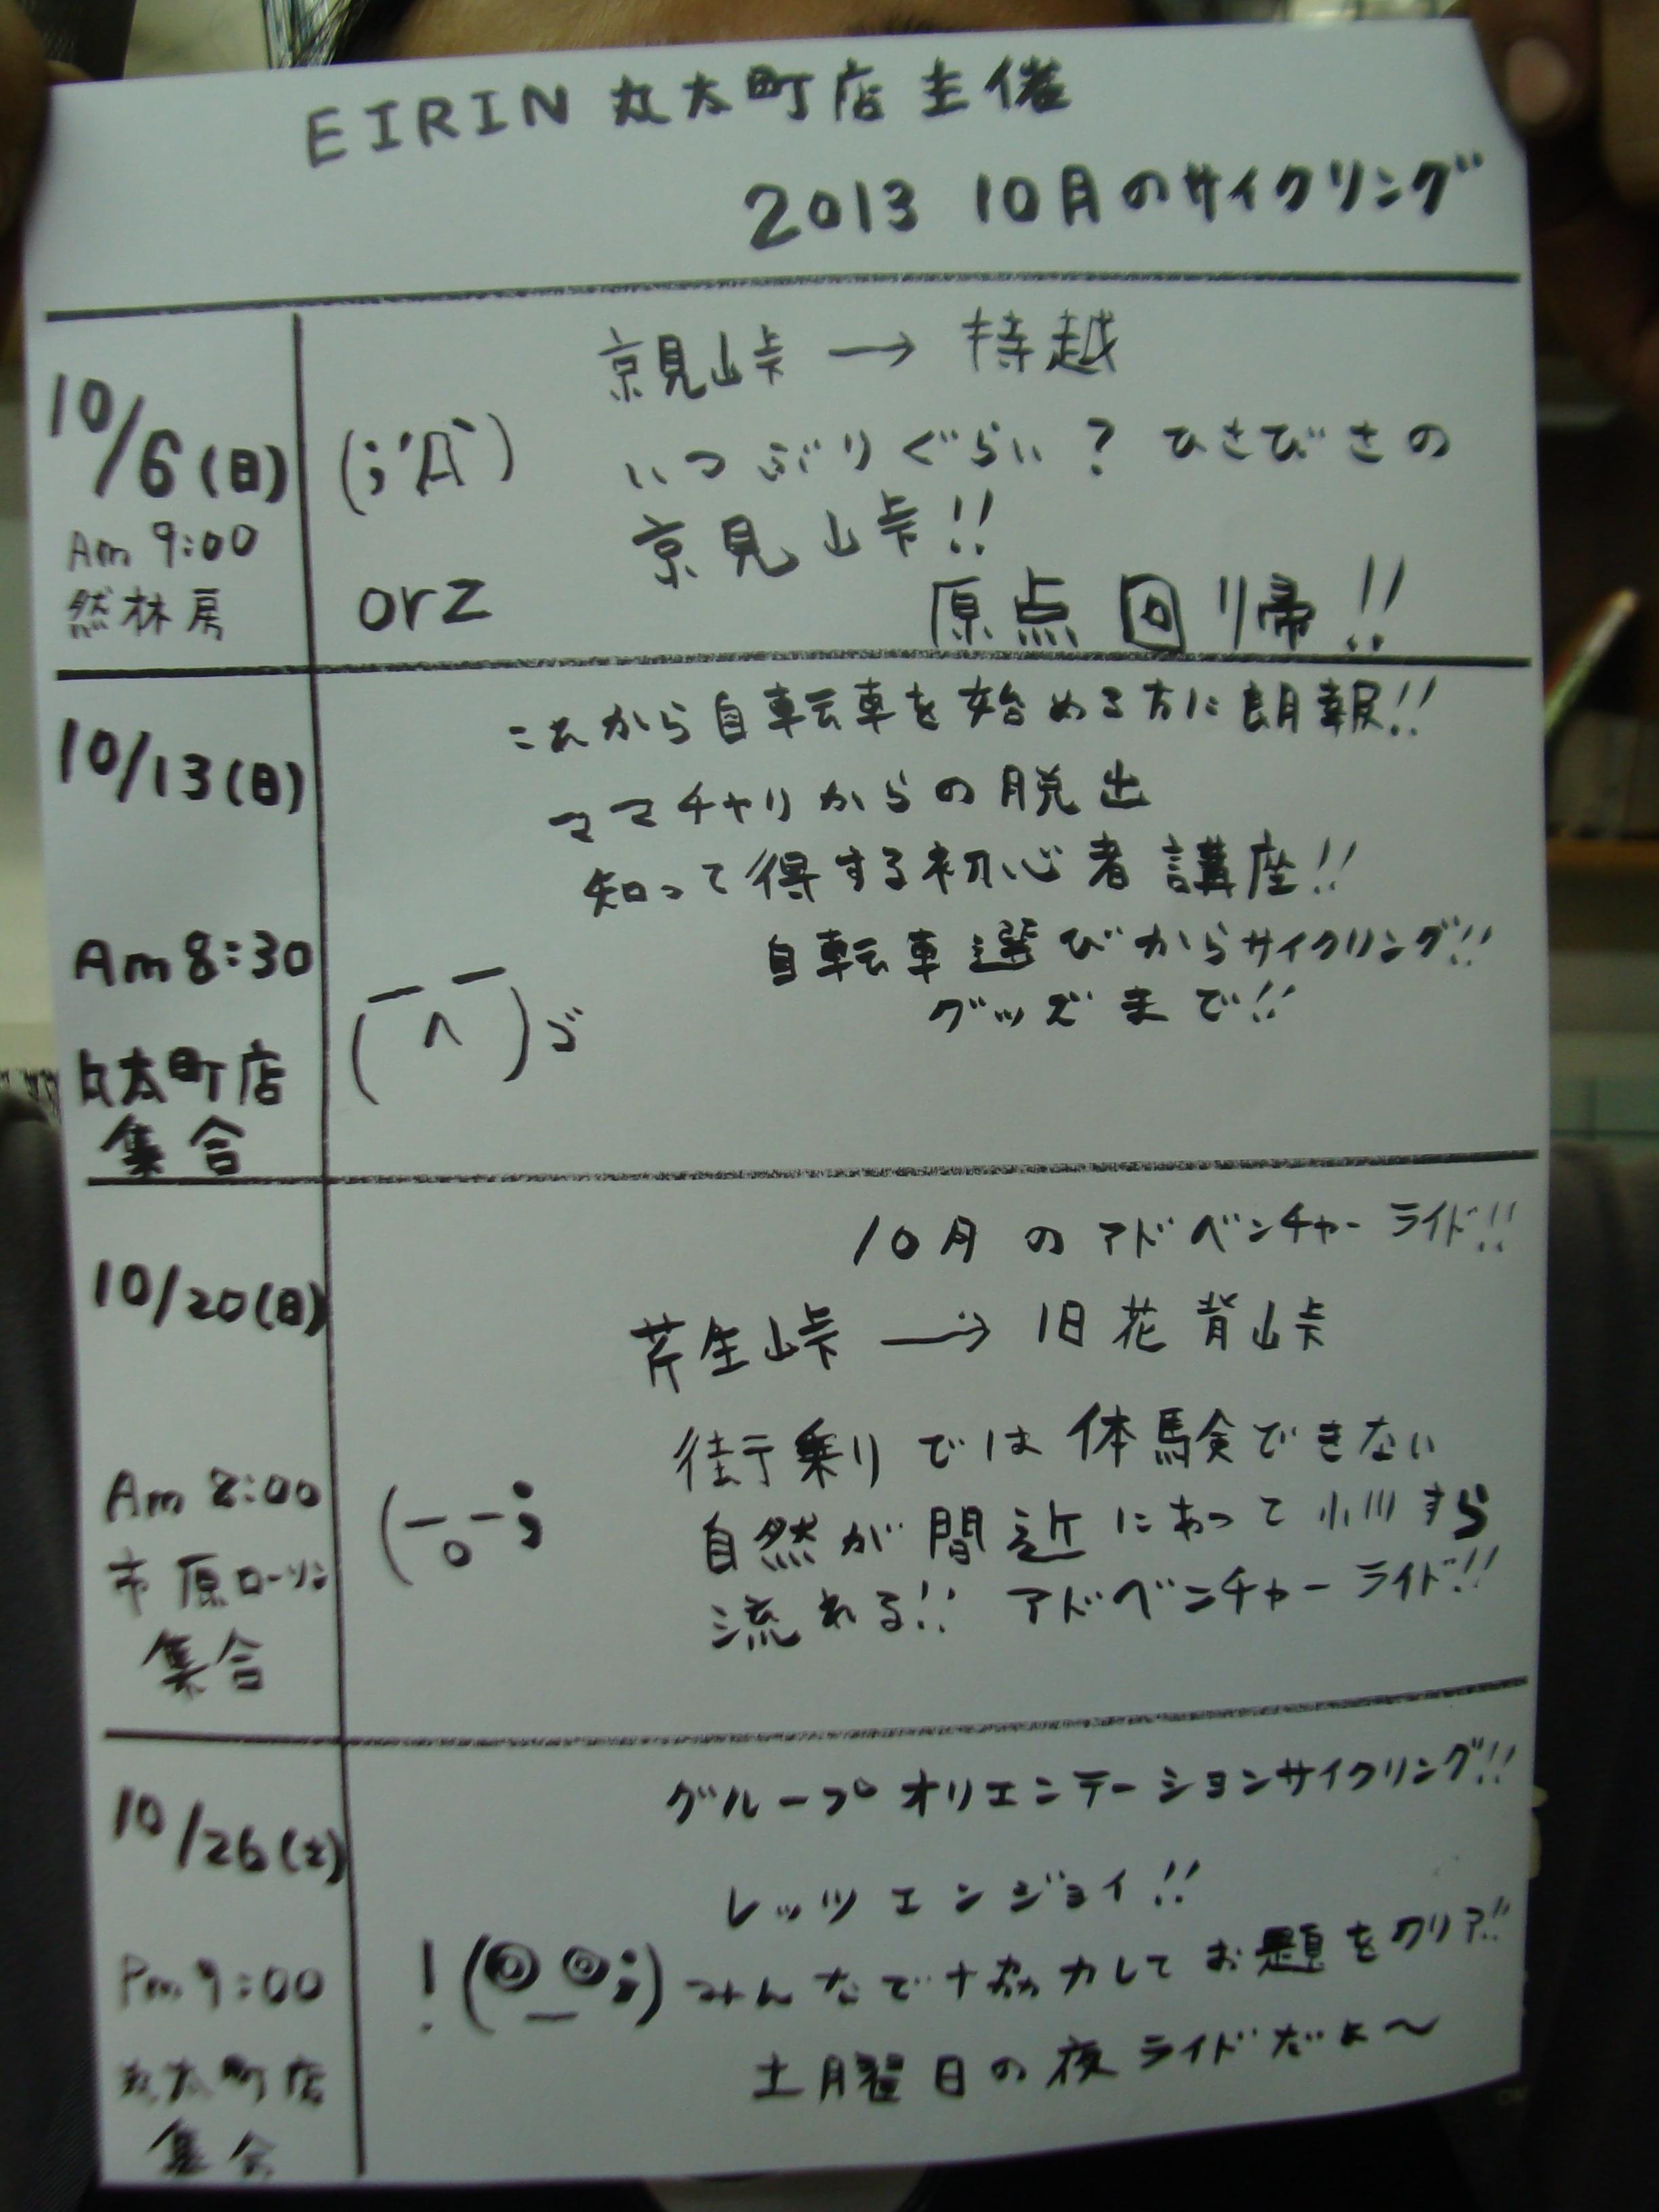 EIRIN 丸太町店 主催
2013 10月のサイクリング
10/6(日)
Am 9:00
然林房
(;´Д`)
orz
京見峠 → 持越
いつぶりぐらい? ひさびさの
京見峠!!
原点回帰!!
10/13(日)
Am 8:30
丸太町店
集合
これから自転車を始める方に朗報!!
ママチャリからの脱出
知って得する初心者講座!!
自転車選びからサイクリング!!
グッズまで!!
10/20(日)
Am 8:00
市原ローソン
集合
10月のアドベンチャーライド!!
芹生峠 → 旧花背峠
街乗りでは体験できない
自然が間近にあって小川すら
流れる!! アドベンチャーライド!!
10/26(土)
Pm 9:00
丸太町店
集合
グループオリエンテーションサイクリング!!
レッツエンジョイ!!
!(◎_◎;) みんなで協力してお題をクリア!!
土曜日の夜ライドだよ〜